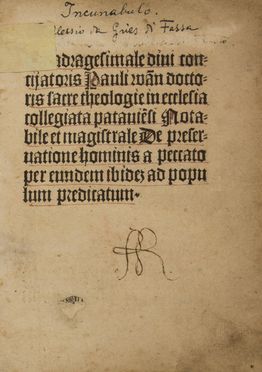 Incunabulo.
Alessio da Gries di Fassa
dragesimale divi con
cionatoris Pauli wañ docto-
ris sacre theologie in ecclesia
collegiata pataviēsi Nota-
bile et magistrale De preser-
vatione hominis a peccato
per eundem ibidez ad popu
lum predicatum.